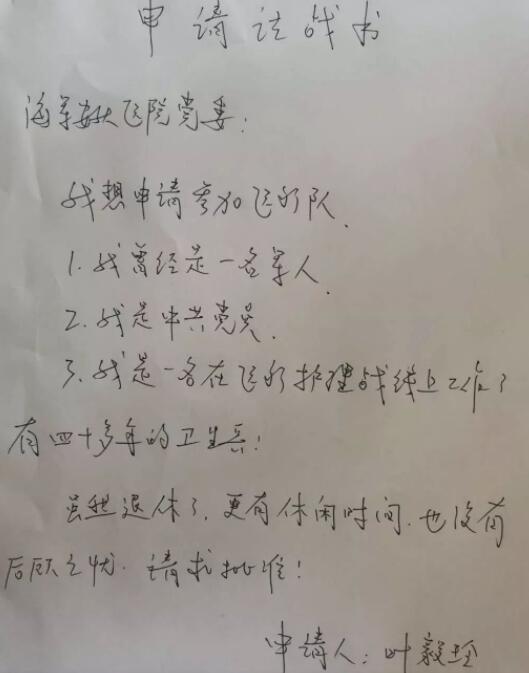 申请请战书
海军安大医院党委:
我想申请参加医疗队.
1.我曾经是一名军人.
2.我是中共党员.
3.我是一名在医疗护理战线上工作了
有四十多年的卫生兵!
虽然退休了,更有休闲时间.也没有
后顾之忧.请求批准!
申请人:叶毅